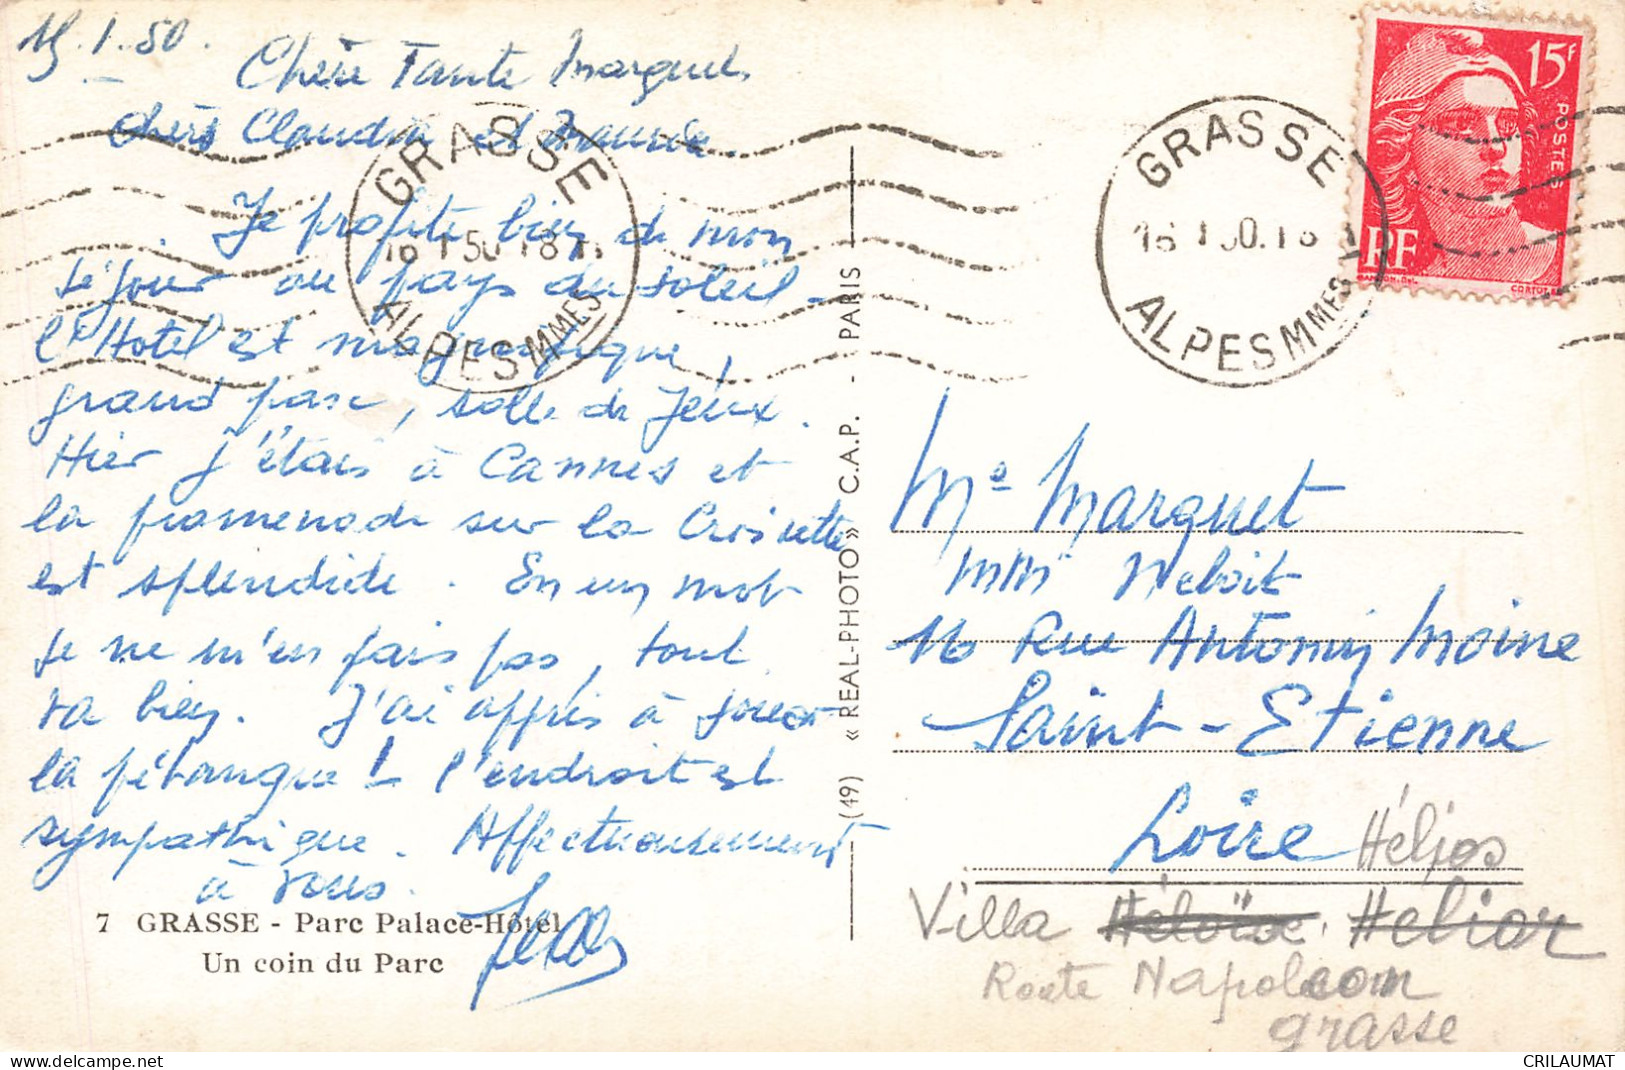 15.1.50.
Chère Tante Marguet,
Chers Claudin et Maurice.
Je profite bien de mon
séjour au pays du soleil -
l'Hotel est magnifique,
grand parc, salle de Jeux.
Hier j'étais à Cannes et
la promenade sur la Croisette
est splendide. En un mot
je ne m'en fais pas, tout
va bien. J'ai appris à jouer
la pétanque ! - l'endroit est
sympathique. Affectueusement
à vous.
7 GRASSE - Parc Palace-Hôtel
Un coin du Parc
GRASSE
18 1 50 18 H
ALPES MMES
(49) « REAL-PHOTO » C.A.P. - PARIS
GRASSE
ALPES MMES
15F
POSTES
RF
Me Marguet
MM Neboit
16 Rue Antonin Moine
Saint-Etienne
Loire
Hélios
Villa Héloïse. Helior
Route Napoleon
grasse
delcampe.net
CRILAUMAT